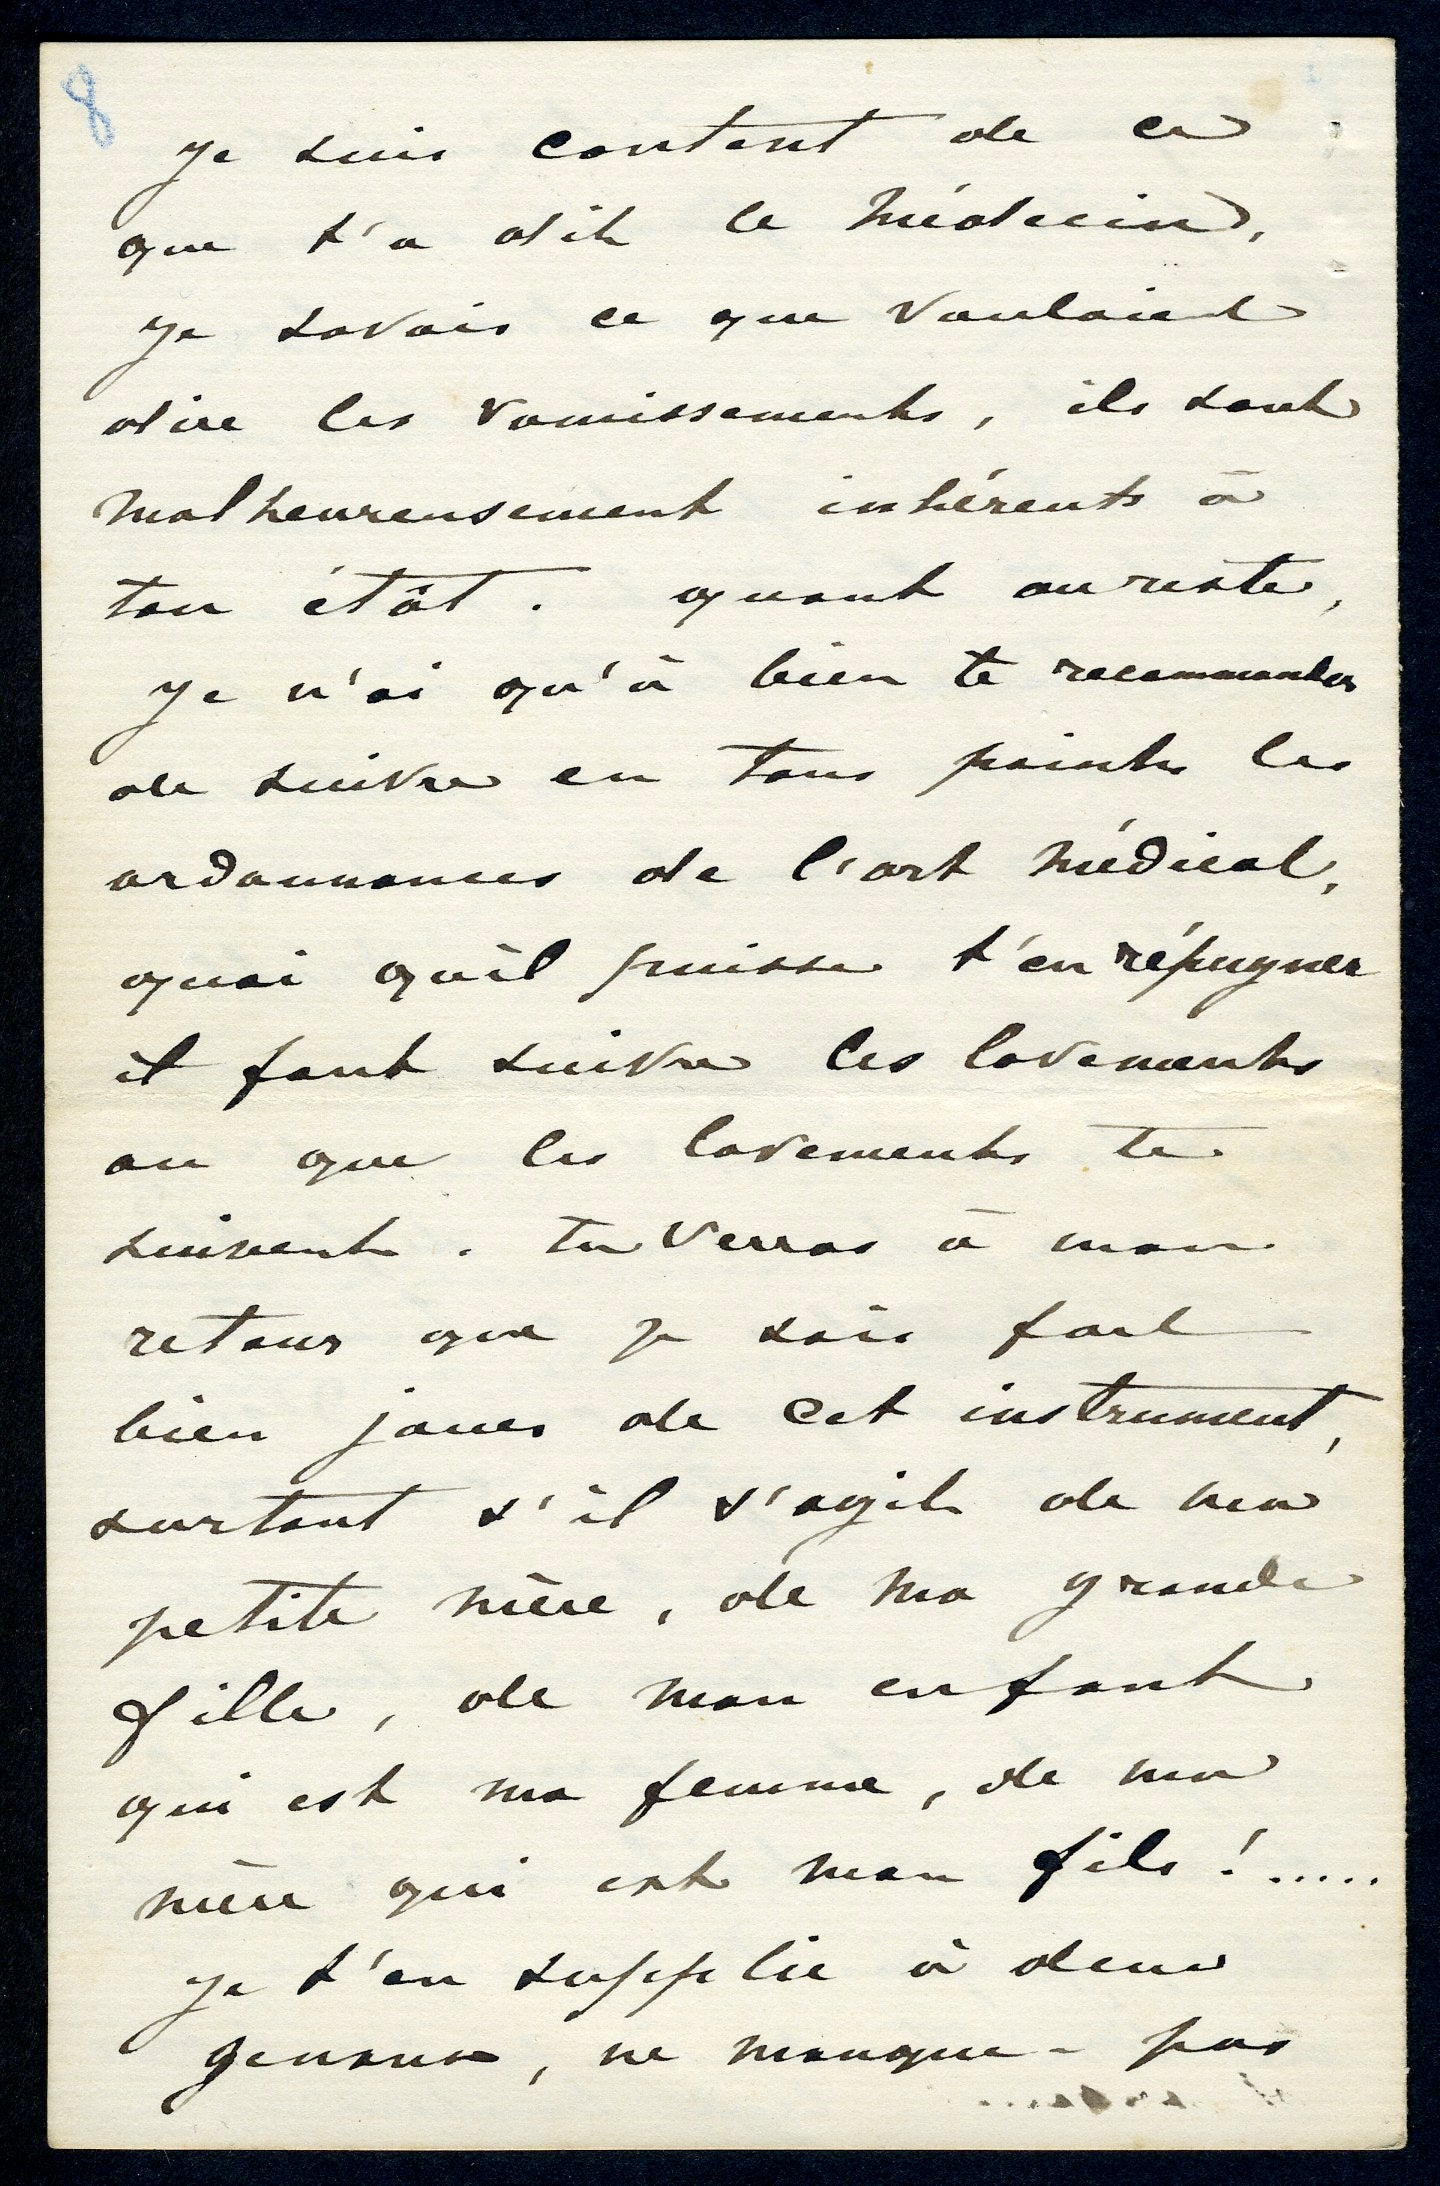 8
je suis content de ce
que t'a dit le médecin,
je savais ce que voulaient
dire les vomissements, ils sont
malheureusement inhérents à
ton étât. quant au reste,
je n'ai qu'à bien te recommander
de suivre en tous points les
ordonnances de l'art médical,
quoi qu'il puisse t'en répugner
il faut suivre les lavements
ou que les lavements te
suivent. tu verras à mon
retour que je sais fort
bien jouer de cet instrument,
surtout s'il s'agit de ma
petite mère, de ma grande
fille, de mon enfant
qui est ma femme, de ma
mère qui est mon fils !.....
je t'en supplie à deux
genoux, ne manque-pas